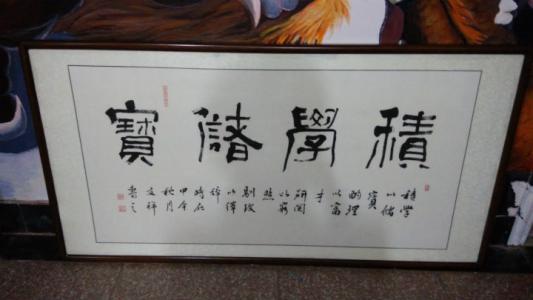 積學儲寶
積學
以儲
寶
酌理
以富
才
研閱
以窮
照
馴致
以繹
辭
時在
秋月
文祥
書之